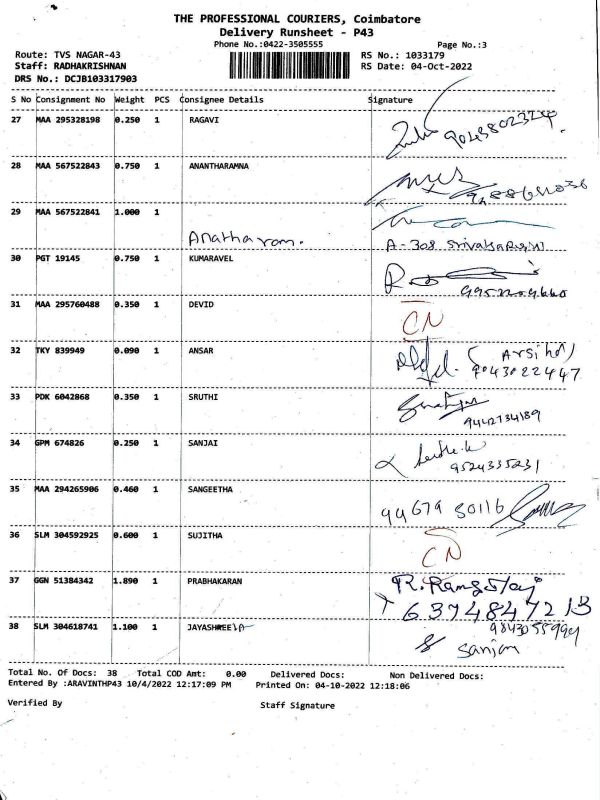 THE PROFESSIONAL COURIERS, Coimbatore
Delivery Runsheet - P43
Phone No.:0422-3505555 Page No.:3
Route: TVS NAGAR-43 RS No.: 1033179
Staff: RADHAKRISHNAN RS Date: 04-Oct-2022
DRS No.: DCJB103317903
S No Consignment No Weight PCS Consignee Details Signature
27 MAA 295328198 0.250 1 RAGAVI
28 MAA 567522843 0.750 1 ANANTHARAMNA
29 MAA 567522841 1.000 1
Anatharam. A-308
30 PGT 19145 0.750 1 KUMARAVEL
31 MAA 295760488 0.350 1 DEVID
CN
32 TKY 839949 0.090 1 ANSAR
9043022447
33 PDK 6042868 0.350 1 SRUTHI
9442734189
34 GPM 674826 0.250 1 SANJAI
9524335231
35 MAA 294265906 0.460 1 SANGEETHA
94679 50116
36 SLM 304592925 0.600 1 SUJITHA
CN
37 GGN 51384342 1.890 1 PRABHAKARAN
6374847213
38 SLM 304618741 1.100 1 JAYASHREE
Total No. Of Docs: 38 Total COD Amt: 0.00 Delivered Docs: Non Delivered Docs:
Entered By :ARAVINTHP43 10/4/2022 12:17:09 PM Printed On: 04-10-2022 12:18:06
Verified By Staff Signature